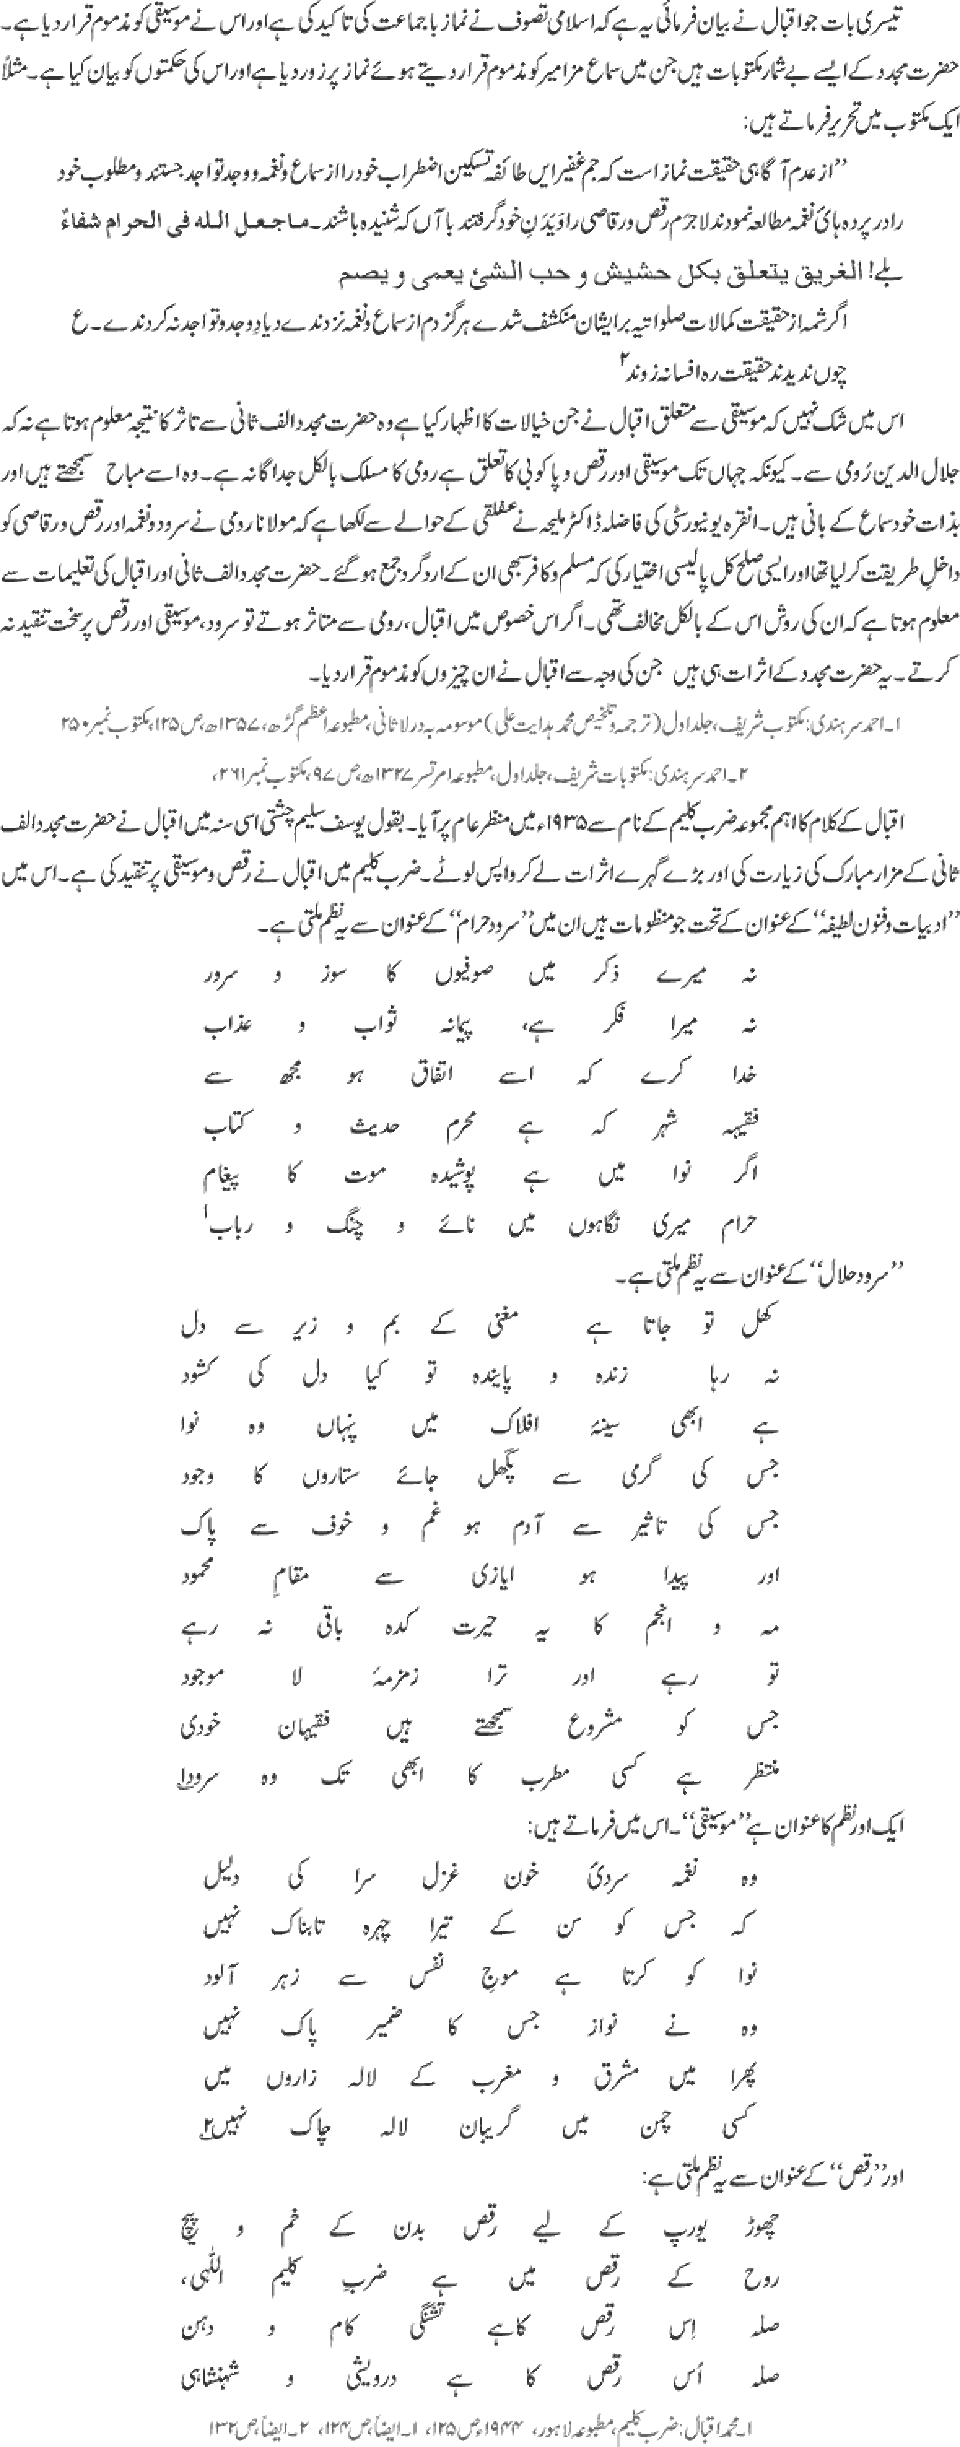 تیسری بات جو اقبال نے بیان فرمائی یہ ہے کہ اسلامی تصوف نے نماز باجماعت کی تاکید کی ہے اور اس نے موسیقی کو مذموم قرار دیا ہے۔
حضرت مجدد کے ایسے بے شمار مکتوبات ہیں جن میں سماع مزامیر کو مذموم قرار دیتے ہوئے نماز پر زور دیا ہے اور اس کی حکمتوں کو بیان کیا ہے۔ مثلاً
ایک مکتوب میں تحریر فرماتے ہیں:
’’از عدم آگاہی حقیقت نماز است کہ جم غفیر ایں طائفہ تسکین اضطراب خود را از سماع و نغمہ و وجد تواجد جستند و مطلوب خود
را در پردہ ہائ نغمہ مطالعہ نمودند لاجرم رقص و رقاصی را وَیدَنِ خود گرفتند با آں کہ شنیدہ باشند۔ ماجعل اللہ فی الحرام شفاءٌ
بلے! الغریق یتعلق بکل حشیش و حب الشئ یعمی و یصم
اگر شمہ از حقیقت کمالات صلواتیہ بر ایشان منکشف شدے ہرگز دم از سماع و نغمہ نزدندے و یادِ وجد و تواجد نہ کردندے۔ ع
چوں ندیدند حقیقت رہ افسانہ زوند۲
اس میں شک نہیں کہ موسیقی سے متعلق اقبال نے جن خیالات کا اظہار کیا ہے وہ حضرت مجدد الف ثانی سے تاثر کا نتیجہ معلوم ہوتا ہے نہ کہ
جلال الدین رُومی سے۔ کیونکہ جہاں تک موسیقی اور رقص و پاکوبی کا تعلق ہے رومی کا مسلک بالکل جداگانہ ہے۔ وہ اسے مباح سمجھتے ہیں اور
بذات خود سماع کے بانی ہیں۔ انقرہ یونیورسٹی کی فاضلہ ڈاکٹر ملیحہ نے عفلقی کے حوالے سے لکھا ہے کہ مولانا رومی نے سرود و نغمہ اور رقص و رقاصی کو
داخلِ طریقت کرلیا تھا اور ایسی صلح کل پالیسی اختیار کی کہ مسلم و کافر سبھی ان کے اردگرد جمع ہوگئے۔ حضرت مجدد الف ثانی اور اقبال کی تعلیمات سے
معلوم ہوتا ہے کہ ان کی روش اس کے بالکل مخالف تھی۔ اگر اس خصوص میں اقبال، رومی سے متاثر ہوتے تو سرود، موسیقی اور رقص پر سخت تنقید نہ
کرتے۔ یہ حضرت مجدد کے اثرات ہی ہیں جن کی وجہ سے اقبال نے ان چیزوں کو مذموم قرار دیا۔
۱۔ احمد سرہندی: مکتوب شریف، جلد اول (ترجمہ و تلخیص محمد ہدایت علی) موسومہ بہ در لاثانی، مطبوعہ اعظم گڑھ، ۱۳۵۷ھ، ص ۱۲۵، مکتوب نمبر ۲۵۰
۲۔ احمد سرہندی: مکتوبات شریف، جلد اول، مطبوعہ امرتسر ۱۳۲۷ھ، ص ۹۷، مکتوب نمبر ۲۶۱،
اقبال کے کلام کا اہم مجموعہ ضرب کلیم کے نام سے ۱۹۳۵ء میں منظر عام پر آیا۔ بقول یوسف سلیم چشتی اسی سنہ میں اقبال نے حضرت مجدد الف
ثانی کے مزار مبارک کی زیارت کی اور بڑے گہرے اثرات لے کر واپس لوٹے۔ ضرب کلیم میں اقبال نے رقص و موسیقی پر تنقید کی ہے۔ اس میں
’’ادبیات و فنون لطیفہ‘‘ کے عنوان کے تحت جو منظومات ہیں ان میں ’’سرود حرام‘‘ کے عنوان سے یہ نظم ملتی ہے۔
نہ میرے ذکر میں صوفیوں کا سوز و سرور
نہ میرا فکر ہے، پیمانہ ثواب و عذاب
خدا کرے کہ اسے اتفاق ہو مجھ سے
فقیہہ شہر کہ ہے محرم حدیث و کتاب
اگر نوا میں ہے پوشیدہ موت کا پیغام
حرام میری نگاہوں میں نائے و چنگ و رباب۱
’’سرود حلال‘‘ کے عنوان سے یہ نظم ملتی ہے۔
کھل تو جاتا ہے مغنی کے بم و زیر سے دل
نہ رہا زندہ و پایندہ تو کیا دل کی کشود
ہے ابھی سینۂ افلاک میں پنہاں وہ نوا
جس کی گرمی سے پگھل جائے ستاروں کا وجود
جس کی تاثیر سے آدم ہو غم و خوف سے پاک
اور پیدا ہو ایازی سے مقامِ محمود
مہ و انجم کا یہ حیرت کدہ باقی نہ رہے
تو رہے اور ترا زمزمۂ لا موجود
جس کو مشروع سمجھتے ہیں فقیہان خودی
منتظر ہے کسی مطرب کا ابھی تک وہ سرود۱
ایک اور نظم کا عنوان ہے ’’موسیقی‘‘۔ اس میں فرماتے ہیں:
وہ نغمہ سردئ خون غزل سرا کی دلیل
کہ جس کو سن کے تیرا چہرہ تابناک نہیں
نوا کو کرتا ہے موجِ نفس سے زہر آلود
وہ نے نواز جس کا ضمیر پاک نہیں
پھرا میں مشرق و مغرب کے لالہ زاروں میں
کسی چمن میں گریبان لالہ چاک نہیں۲
اور ’’رقص‘‘ کے عنوان سے یہ نظم ملتی ہے:
چھوڑ یورپ کے لیے رقص بدن کے خم و پیچ
روح کے رقص میں ہے ضربِ کلیم اللٰہی،
صلہ اِس رقص کاہے تشنگی کام و دہن
صلہ اُس رقص کا ہے درویشی و شہنشاہی
۱۔ محمد اقبال: ضرب کلیم، مطبوعہ لاہور، ۱۹۴۴ء ص ۱۲۵، ۱۔ ایضاً، ص ۱۲۴، ۲۔ ایضاً، ص ۱۳۲